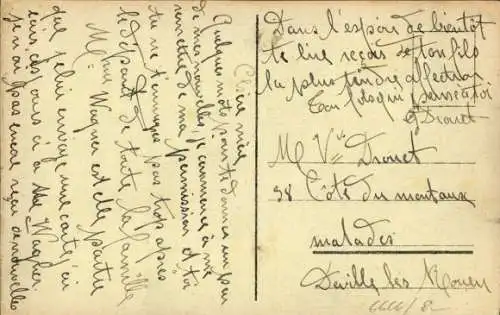 Chère mère
Quelques mots pour te donner un peu
de mes nouvelles, je commence à me
remettre de ma permission et toi
tu ne t'ennuyes pas trop après
le départ de toute la famille
Mme Wagner est elle partie
que je lui envoye une carte, ici
à Mme Wagner
je n'ai pas encore reçu de nouvelles
Dans l'espoir de bientôt
te lire reçois de ton fils
la plus tendre affection
Ton fils qui pense à toi
G Drouet
Me Vve Drouet
58 Côte du mont aux
malades
Déville les Rouen